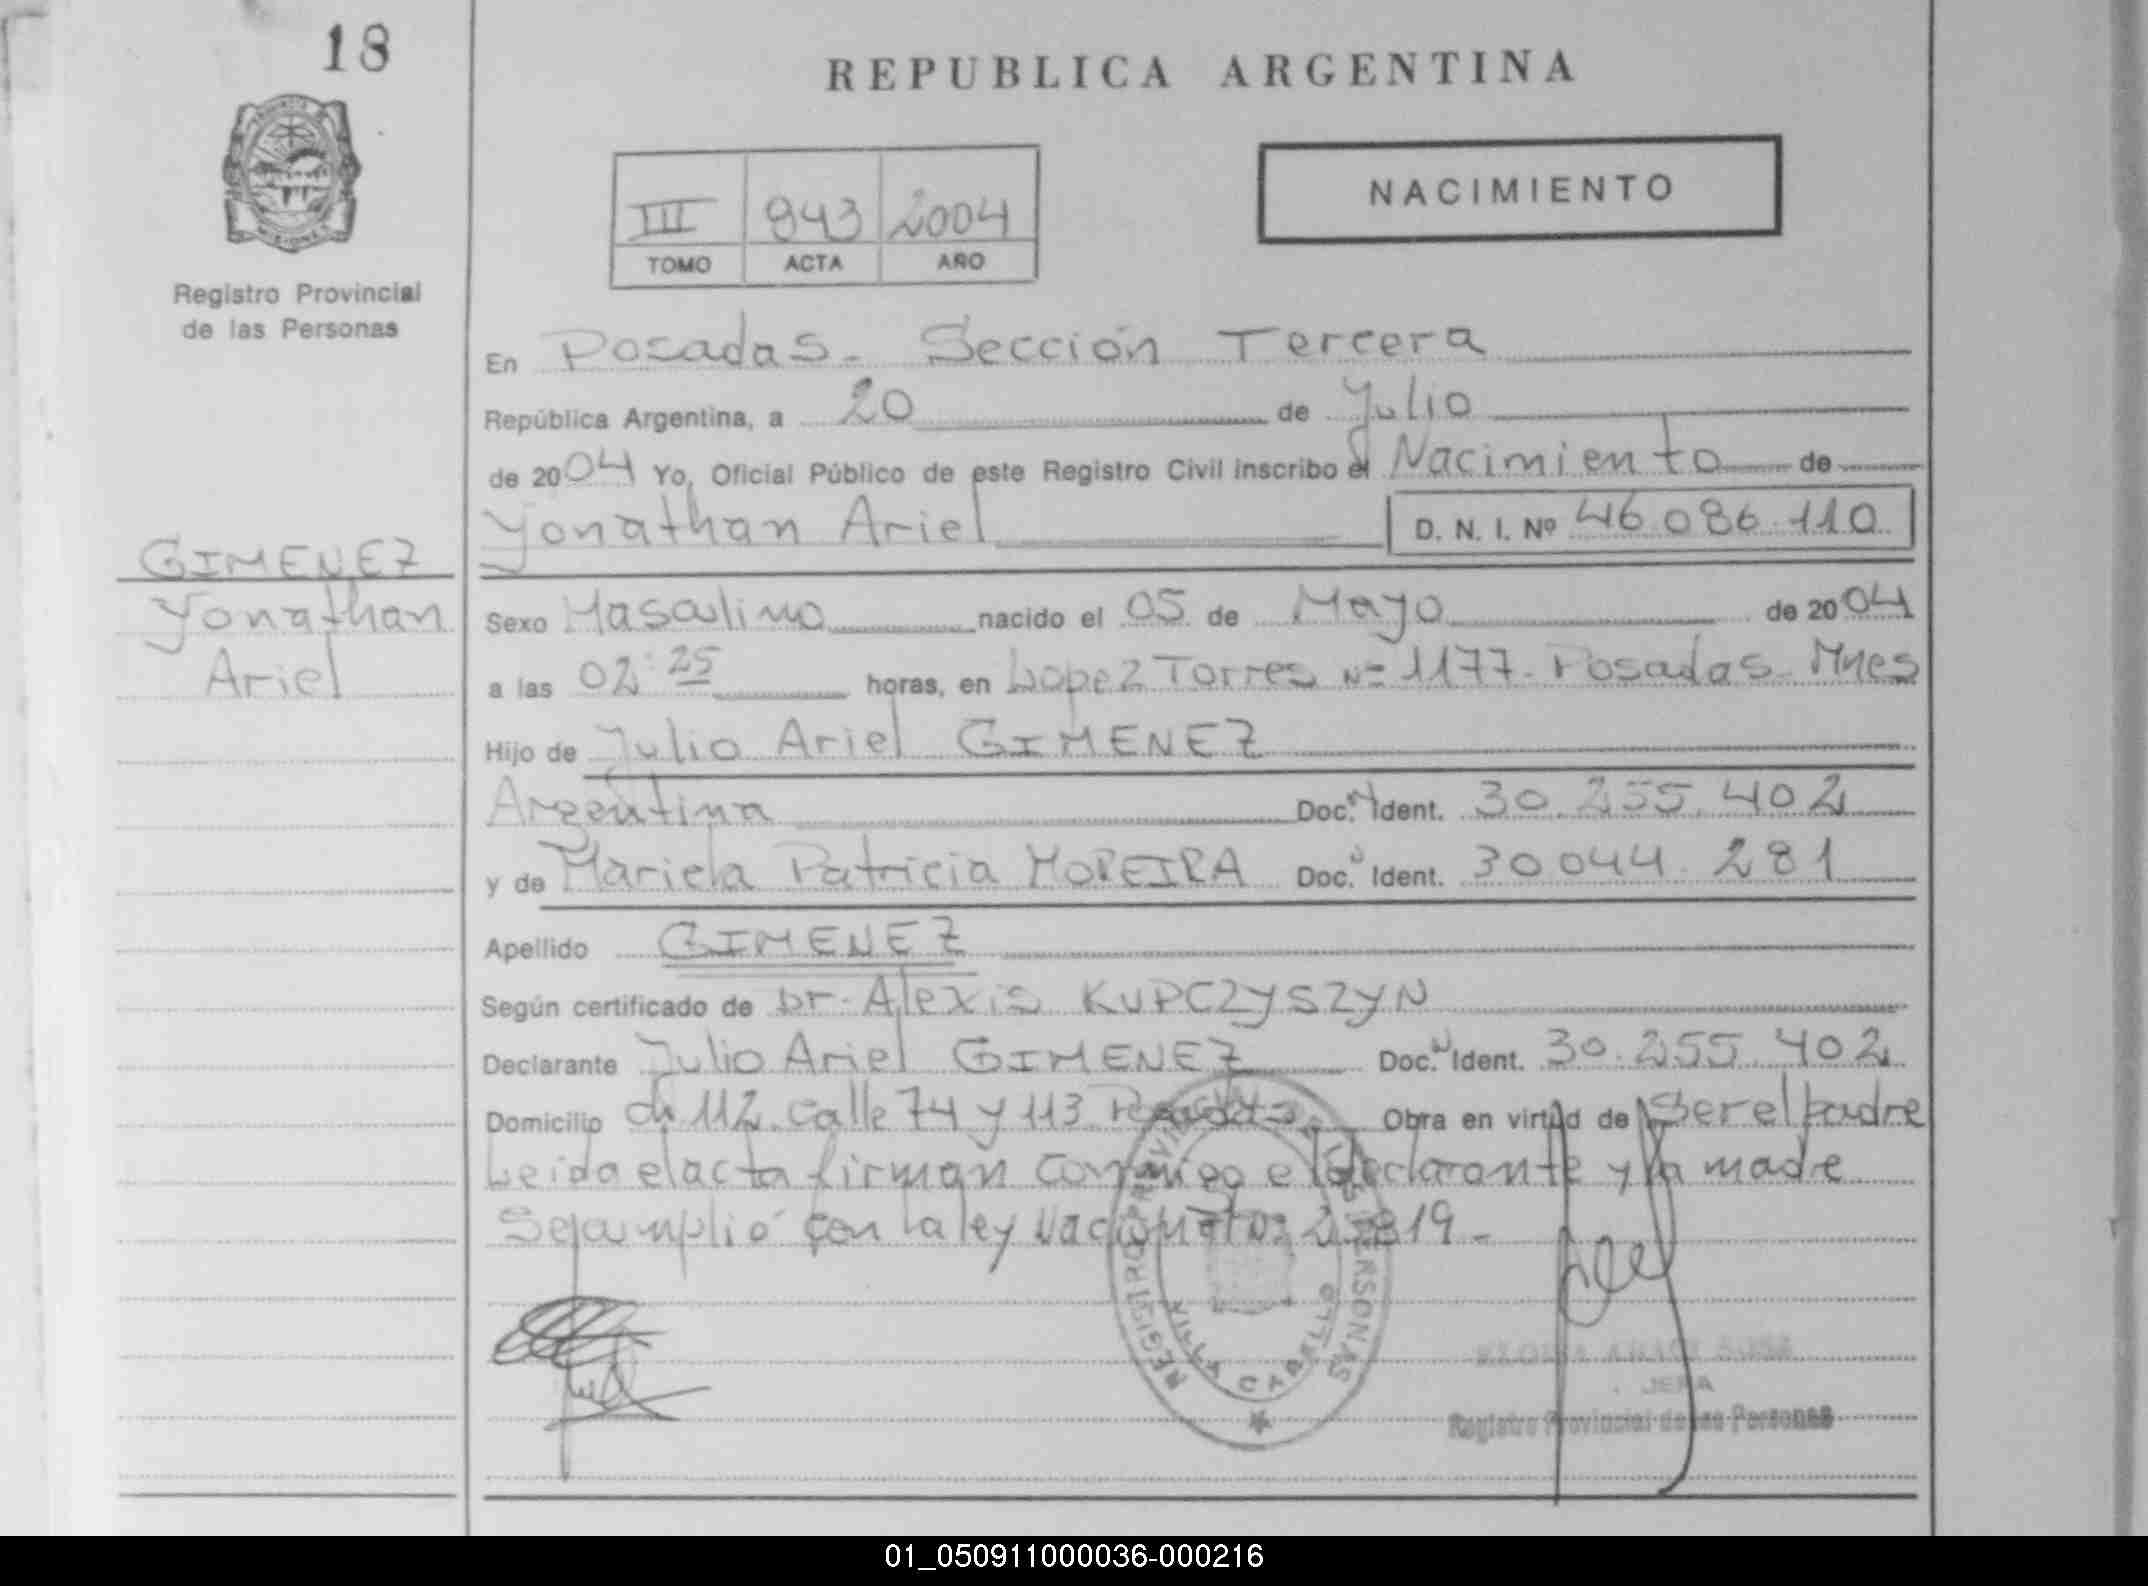 18
REPUBLICA ARGENTINA
NACIMIENTO
III 943 2004
TOMO ACTA AÑO
Registro Provincial
de las Personas
En Posadas - Sección Tercera
República Argentina, a 20 de Julio
de 2004 Yo, Oficial Público de este Registro Civil inscribo el Nacimiento de
Yonathan Ariel D. N. I. Nº 46.086.110
GIMENEZ
Yonathan
Ariel
Sexo Masculino nacido el 05 de Mayo de 2004
a las 02:25 horas, en Lopez Torres Nº 1177 - Posadas - Mnes
Hijo de Julio Ariel GIMENEZ
Argentina Doc. N Ident. 30.255.402
y de Mariela Patricia MOREIRA Doc. N Ident. 30044.281
Apellido GIMENEZ
Según certificado de Dr. Alexis KUPCZYSZYN
Declarante Julio Ariel GIMENEZ Doc. N Ident. 30.255.402
Domicilio ch 112 calle 74 y 113 Posadas Obra en virtud de ser el padre
Leida el acta firman conmigo el declarante y la madre
Se cumplió con la ley Nacional Nº 819 -
REGISTRO PROVINCIAL DE LAS PERSONAS
VILLA CABELLO
JEFA
Registro Provincial de las Personas
01_050911000036-000216